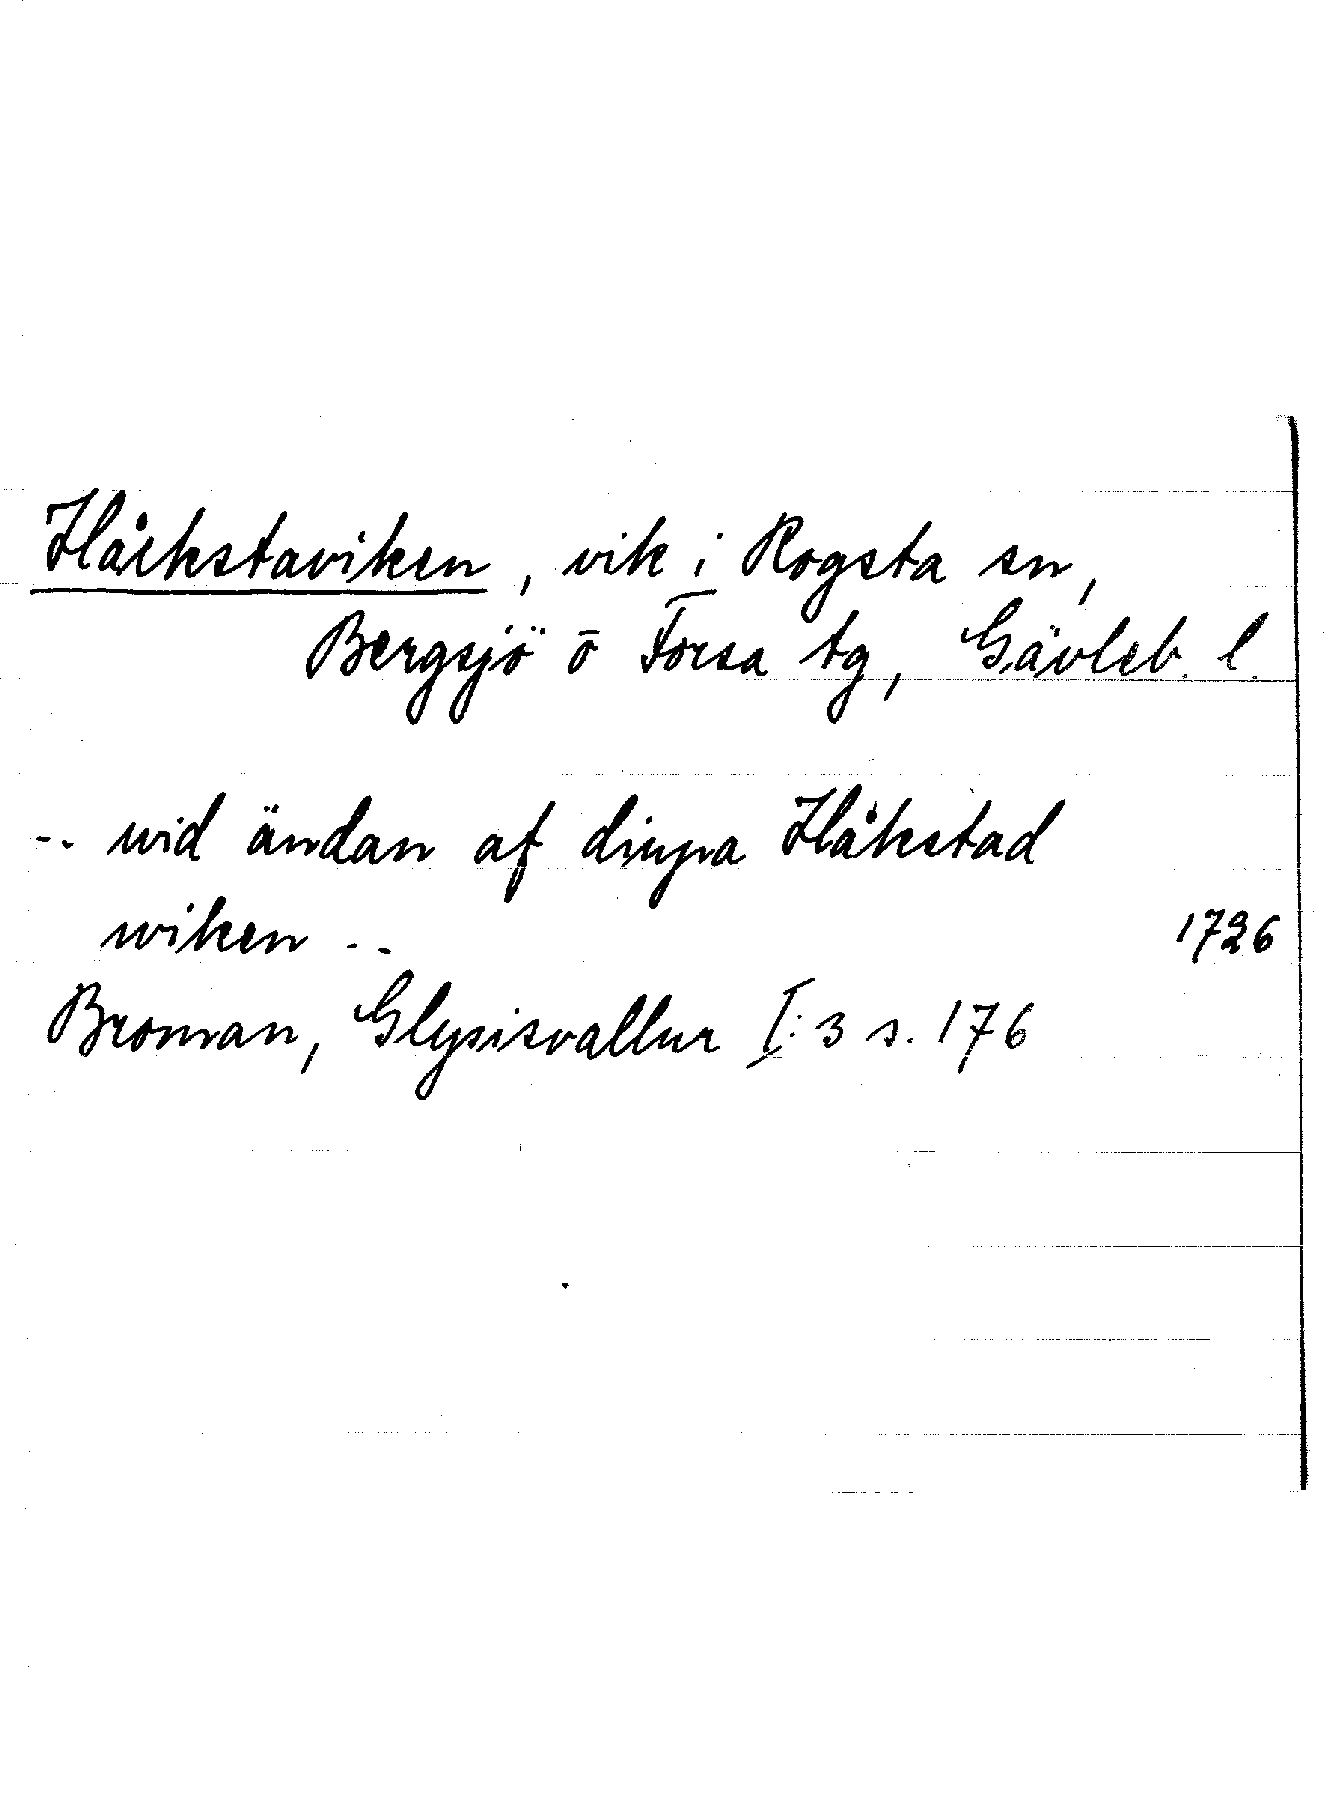 Håckstaviken, vik i Rogsta sn,
Bergsjö o Forsa tg, Gävleb. l.
-- wid ändan af diupa Håkstad
wiken -- 1726
Broman, Glysisvallur I:3 s. 176